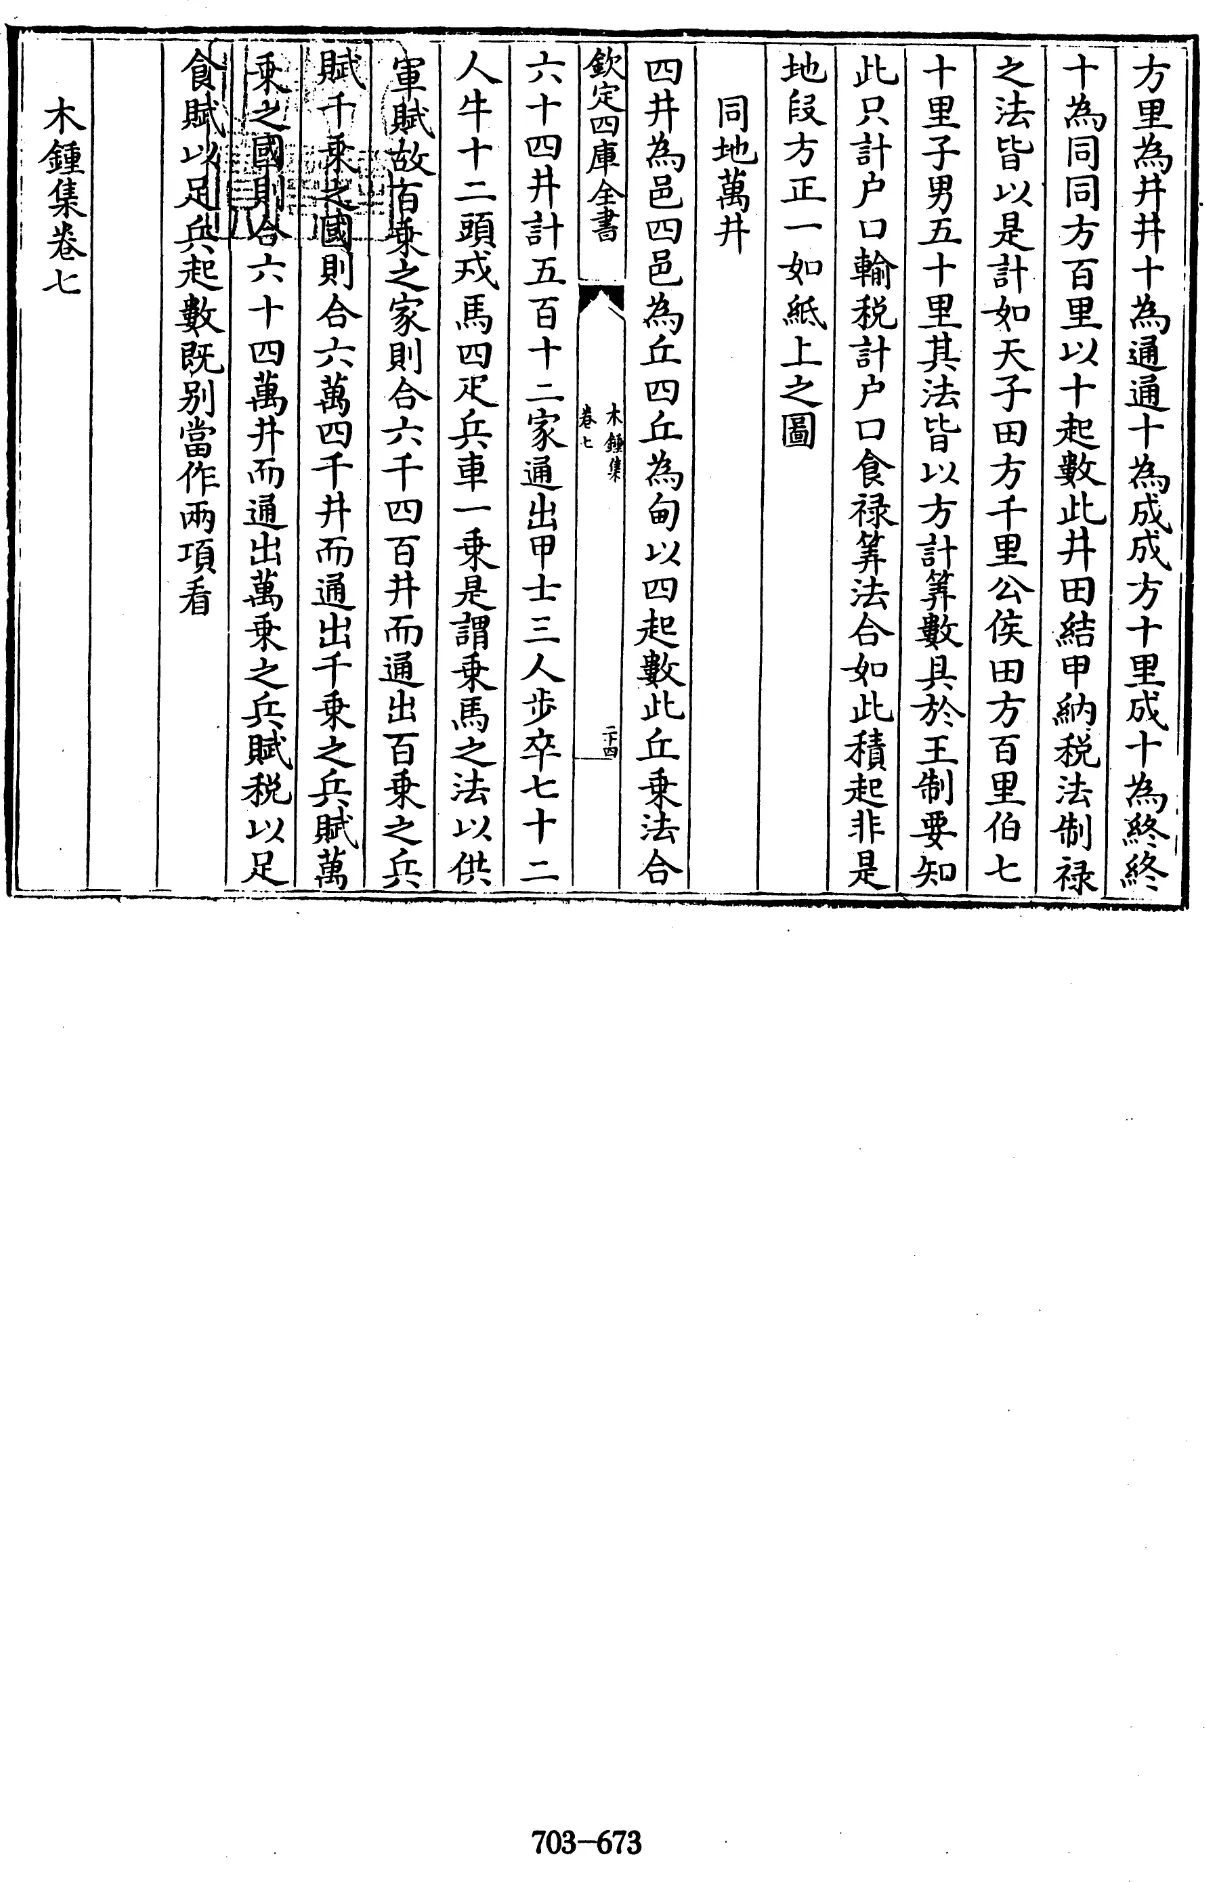 方里為井井十為通通十為成成方十里成十為終終
十為同同方百里以十起數此井田結甲納税法制禄
之法皆以是計如天子田方千里公侯田方百里伯七
十里子男五十里其法皆以方計筭數具於王制要知
此只計户口輸税計户口食禄筭法合如此積起非是
地段方正一如紙上之圖
同地萬井
四井為邑四邑為丘四丘為甸以四起數此丘乗法合
欽定四庫全書
木鍾集
卷七
二十四
六十四井計五百十二家通出甲士三人步卒七十二
人牛十二頭戎馬四疋兵車一乗是謂乗馬之法以供
軍賦故百乗之家則合六千四百井而通出百乗之兵
賦千乗之國則合六萬四千井而通出千乗之兵賦萬
乗之國則合六十四萬井而通出萬乗之兵賦税以足
食賦以足兵起數既别當作兩項看
木鍾集卷七
703-673